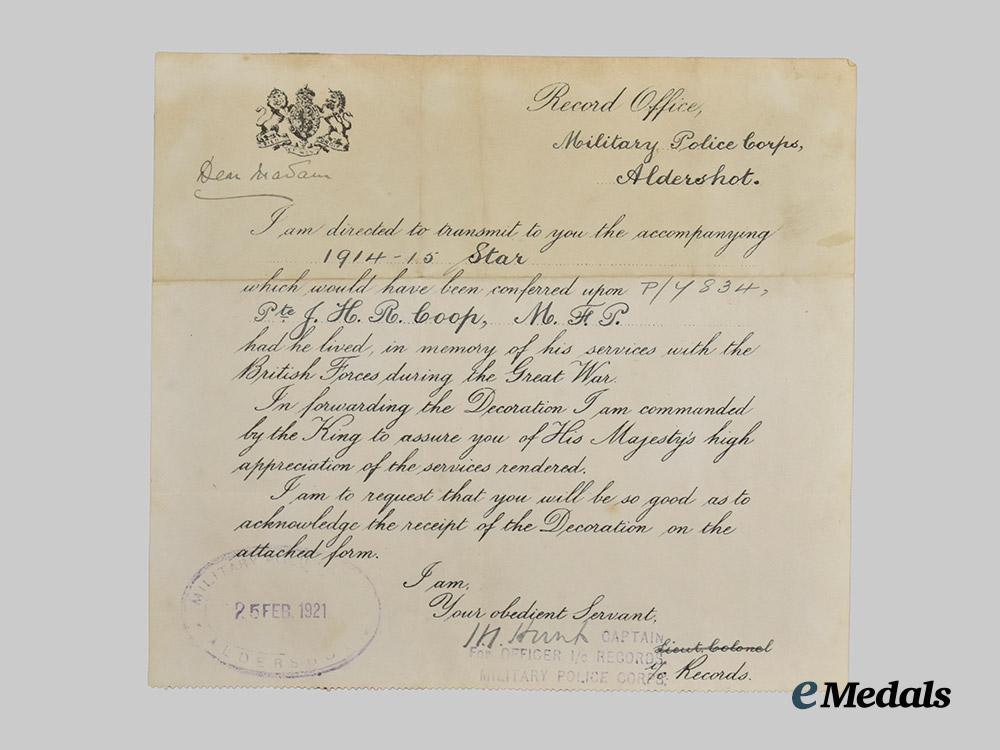 Record Office,
Military Police Corps,
Aldershot.
Dear Madam
I am directed to transmit to you the accompanying
1914-15 Star
which would have been conferred upon P/4834,
Pte J. H. R. Coop, M. F. P.
had he lived, in memory of his services with the
British Forces during the Great War.
In forwarding the Decoration I am commanded
by the King to assure you of His Majesty's high
appreciation of the services rendered.
I am to request that you will be so good as to
acknowledge the receipt of the Decoration on the
attached form.
I am,
Your obedient Servant,
Hunt CAPTAIN
Lieut. Colonel
FOR OFFICER I/c RECORDS
i/c Records.
MILITARY POLICE CORPS.
MILITARY
25 FEB. 1921
ALDERSHOT
eMedals